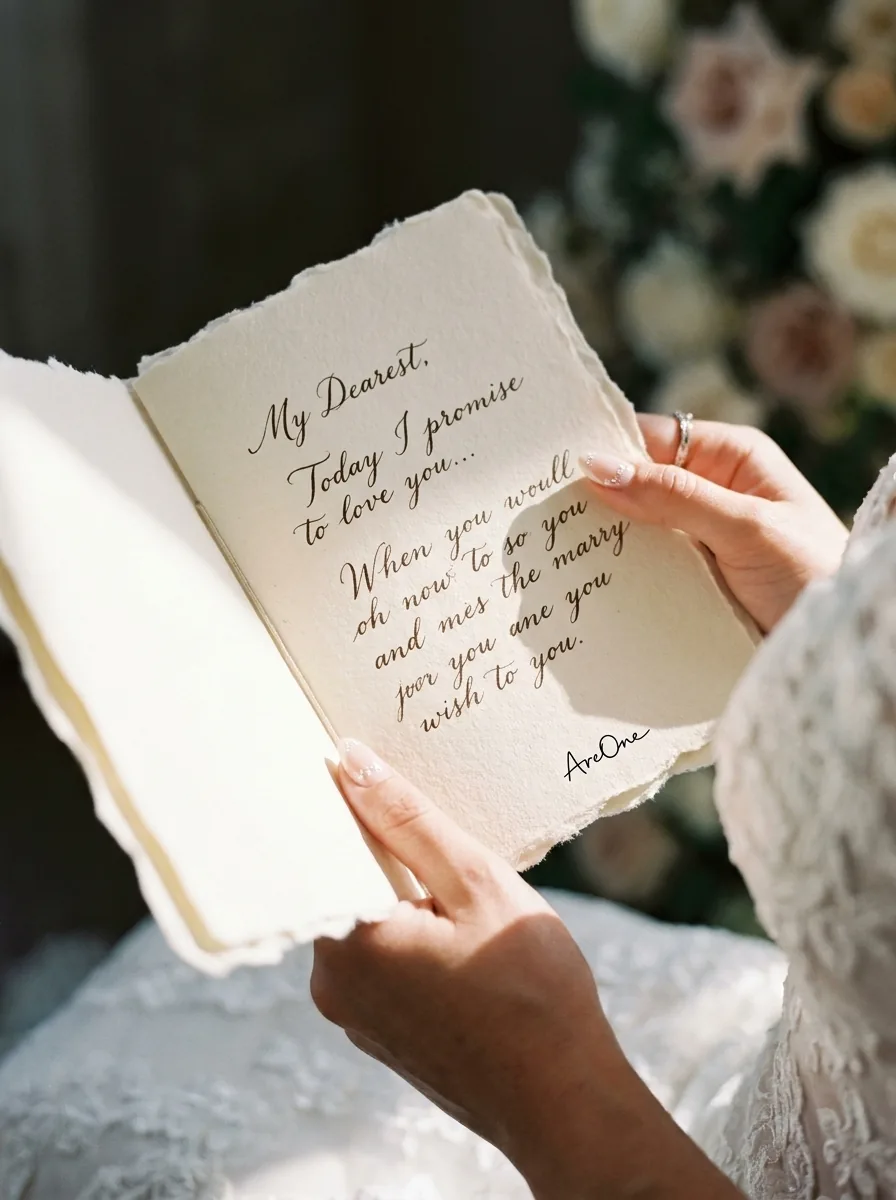 My Dearest,
Today I promise
to love you...
When you woull
oh now to so you
and mes the marry
joor you ane you
wish to you.
AreOne